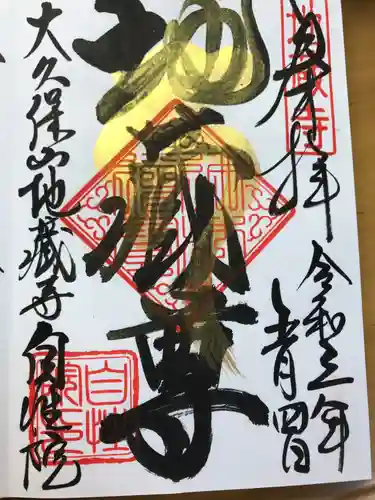 奉拝
令和三年
地蔵尊
大久保山地蔵寺自性院
自性
院印